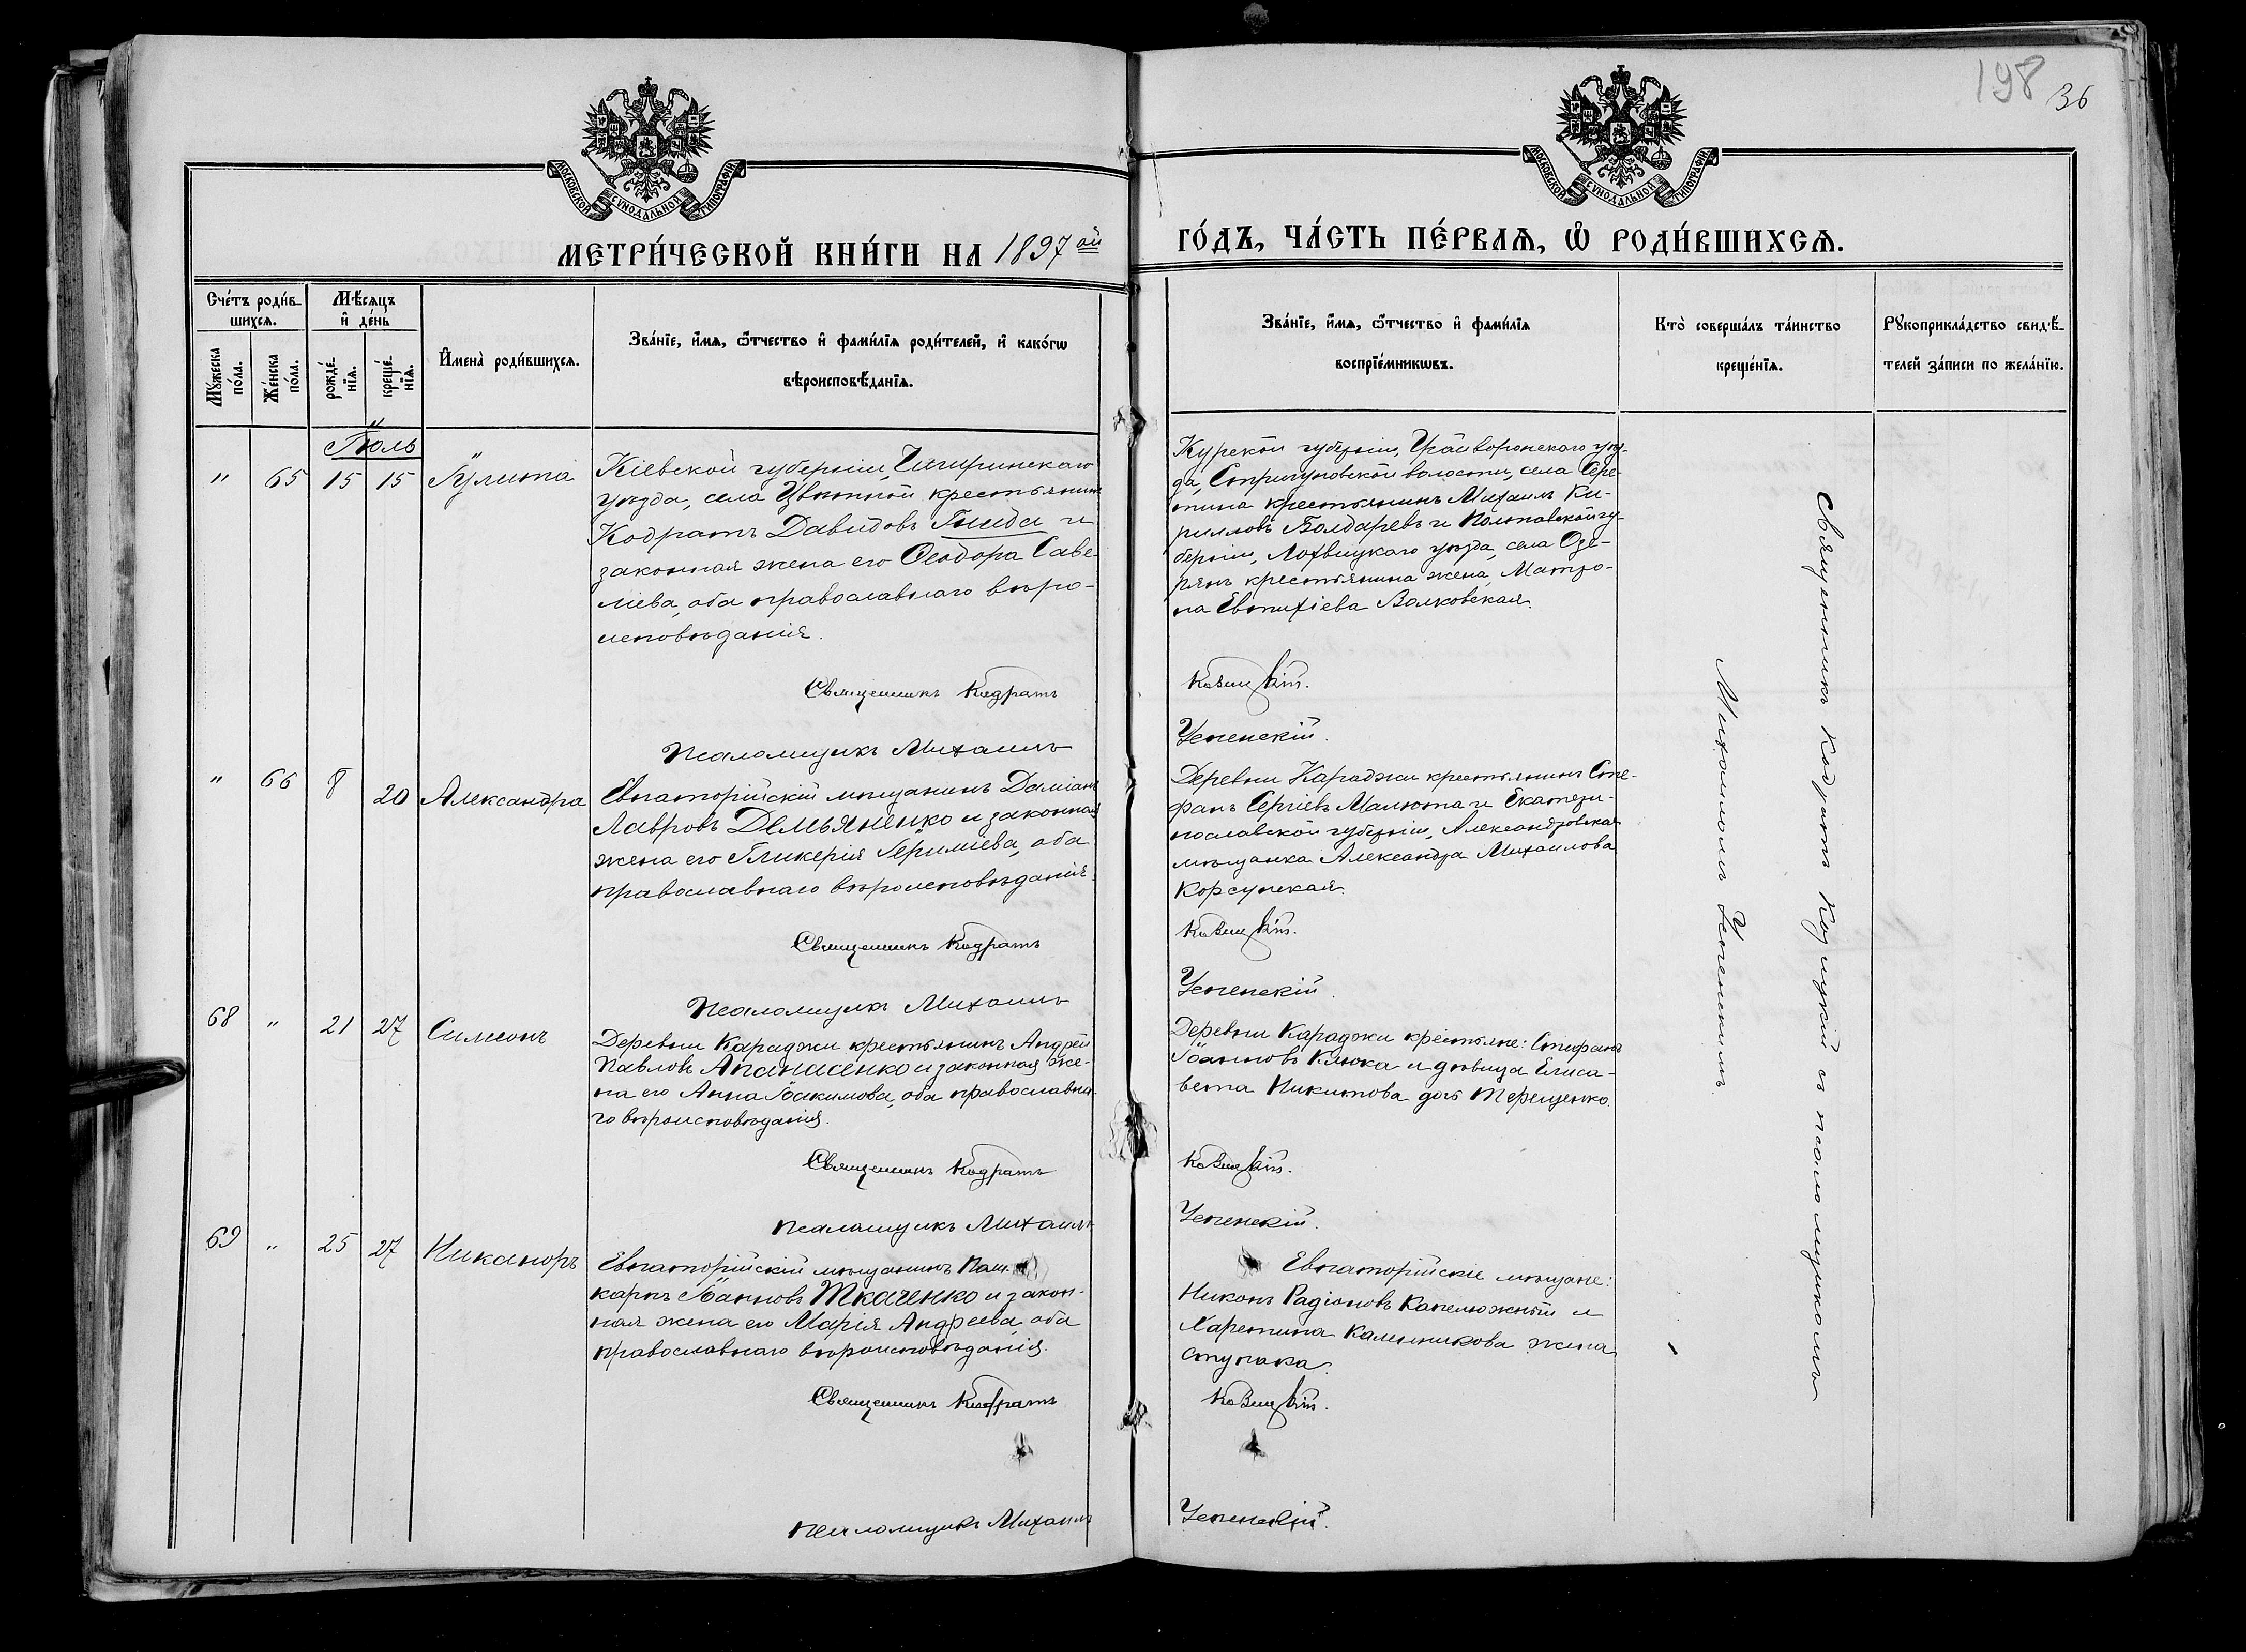 198
36
МОСКОВСКОЙ СѴНОДАЛЬНОЙ ТИПОГРАФІИ
МОСКОВСКОЙ СѴНОДАЛЬНОЙ ТИПОГРАФІИ
МЕТРИ́ЧЕСКОЙ КНИ́ГИ НА 1897ой
ГО́ДЪ, ЧА́СТЬ ПЕ́РВАѦ, Ѡ РОДИ́ВШИХСѦ.
Сче́тъ роди́в-
шихсѧ.
Мꙋ́жеска
по́ла.
Же́нска
по́ла.
Мѣ́сѧцъ
и де́нь
рожде́-
нїѧ.
креще́-
нїѧ.
Имена̀ роди́вшихсѧ.
Зва́нїе, и́мѧ, ѻ́тчество и фами́лїѧ роди́телей, и како́гѡ
вѣроисповѣ́данїѧ.
Зва́нїе, и́мѧ, ѻ́тчество и фами́лїѧ
воспрїе́мникѡвъ.
Кто̀ соверша́лъ та́инство
креще́нїѧ.
Рꙋкоприкла́дство свидѣ́-
телей за́писи по жела́нїю.
Іюль
" 65 15 15 Іулита
Кіевской губерніи, Чигиринскаго
уѣзда, села Цвѣтной крестьянинъ
Кодратъ Давидовъ Гнида и
законная жена его Ѳеодора Саве-
ліева, оба православнаго вѣро-
исповѣданія.
Священникъ Кодратъ
Псаломщикъ Михаилъ
Курской губерніи, Грайворонскаго уѣз-
да, Стригуновской волости, села Сере-
тина крестьянинъ Михаилъ Ки-
рилловъ Болдаревъ и Полтавской гу-
берніи, Лохвицкаго уѣзда, села Озе-
рянъ крестьянина жена, Матро-
на Евтихіева Волковская.
Козицкій.
Успенскій.
" 66 8 20 Александра
Евпаторійскій мѣщанинъ Даміанъ
Лавровъ Демьяненко и законная
жена его Гликерія Іереміева, оба
православнаго вѣроисповѣданія.
Священникъ Кодратъ
Псаломщикъ Михаилъ
Деревни Караджи крестьянинъ Сте-
фанъ Сергіевъ Малюта и Екатери-
нославской губерніи, Александровская
мѣщанка Александра Михаилова
Корсунская.
Козицкій.
Успенскій.
68 " 21 27 Симеонъ
Деревни Караджи крестьянинъ Андрей
Павловъ Апанасенко и законная же-
на его Анна Іоакимова, оба православна-
го вѣроисповѣданія.
Священникъ Кодратъ
Псаломщикъ Михаилъ
Деревни Караджи крестьяне: Стефанъ
Іоанновъ Клюка и дѣвица Елиса-
вета Никитова дочь Терещенко.
Козицкій.
Успенскій.
69 " 25 27 Никаноръ
Евпаторійскій мѣщанинъ
карпъ Іоанновъ Ткаченко и закон-
ная жена его Марія Андреева, оба
православнаго вѣроисповѣданія.
Священникъ Кодратъ
Псаломщикъ Михаилъ
Евпаторійскіе мѣщане:
Никонъ Радіоновъ Капелюжный и
Харетина Калинникова жена
Ступака.
Козицкій.
Успенскій.
Священникъ Кодратъ Козицкій съ псаломщикомъ
Михаиломъ Успенскимъ.